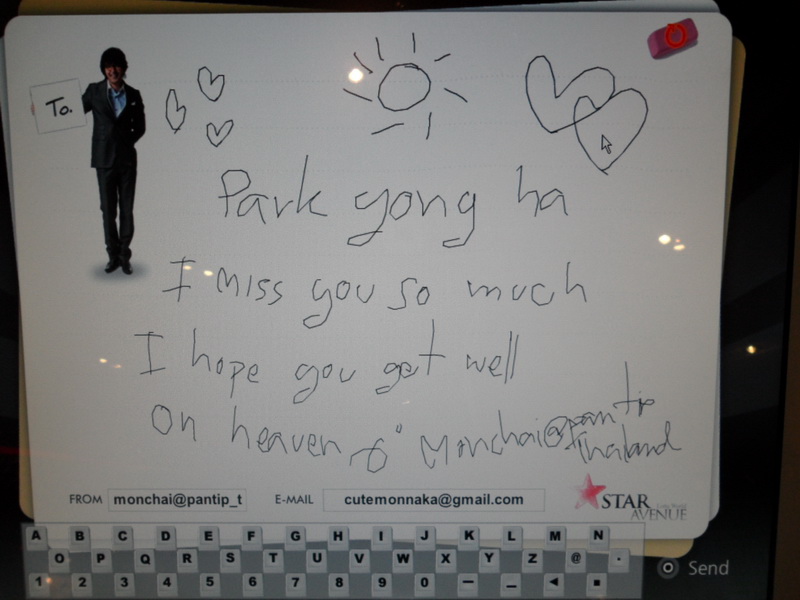 To.
Park yong ha
I miss you so much
I hope you get well
On heaven
Monchai@pantip
Thailand
FROM monchai@pantip_t E-MAIL cutemonnaka@gmail.com
STAR
AVENUE
A B C D E F G H I J K L M N
O P Q R S T U V W X Y Z @ .
1 2 3 4 5 6 7 8 9 0 – _ ◄ ■
Send